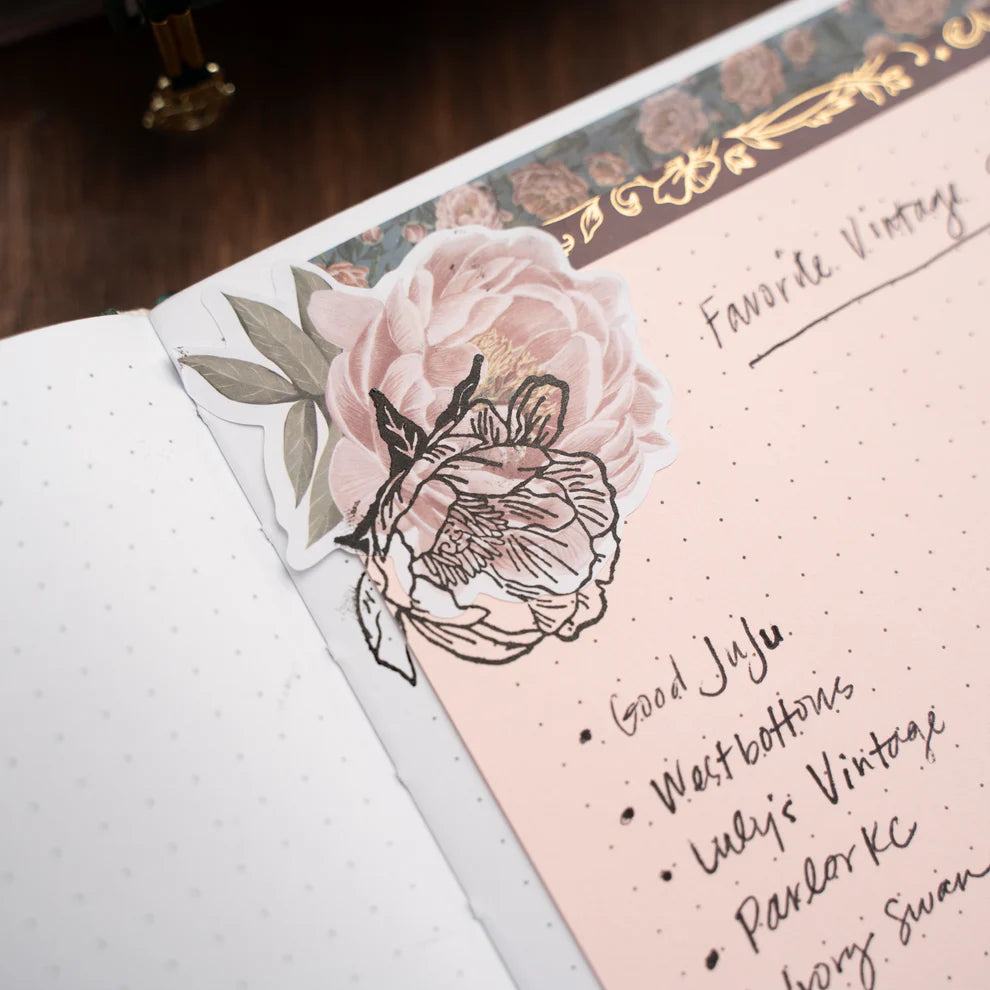 Favorite Vintage
• Good JuJu
• Westbottoms
• Luly's Vintage
• Parlor KC
• Ivory Swan